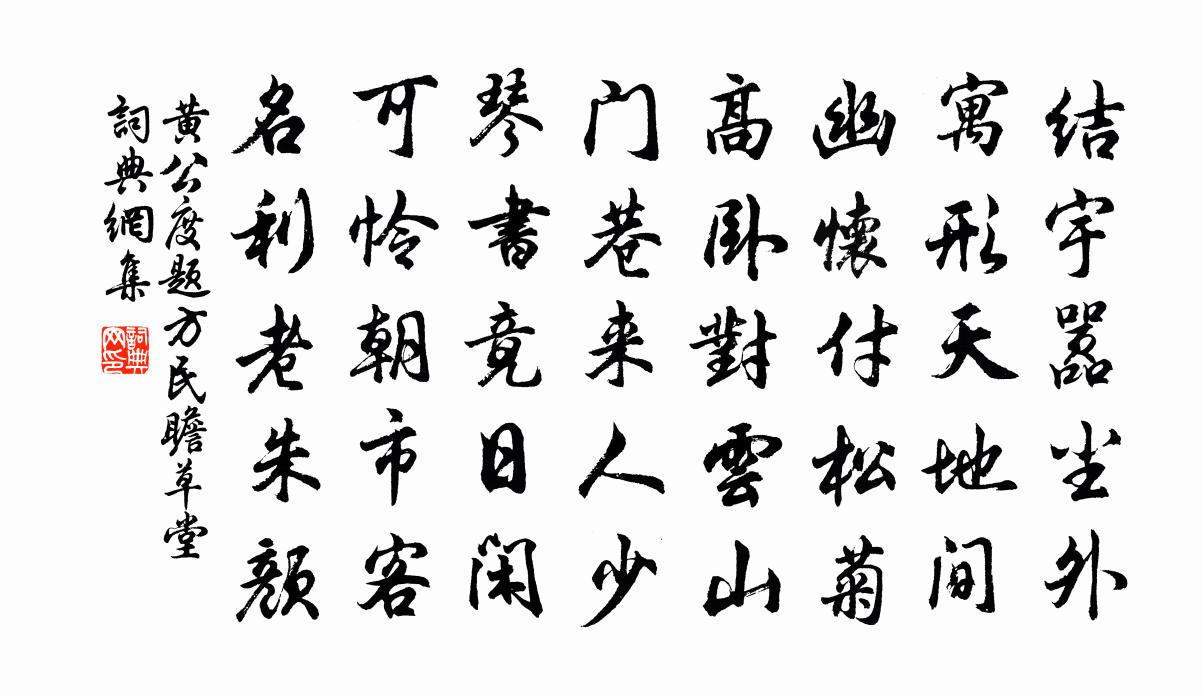 结宇嚣尘外
寓形天地间
幽懷付松菊
高卧對雲山
门巷来人少
琴書竟日闲
可怜朝市客
名利老朱颜
黄公度题方民瞻草堂
詞典網集
詞典网印